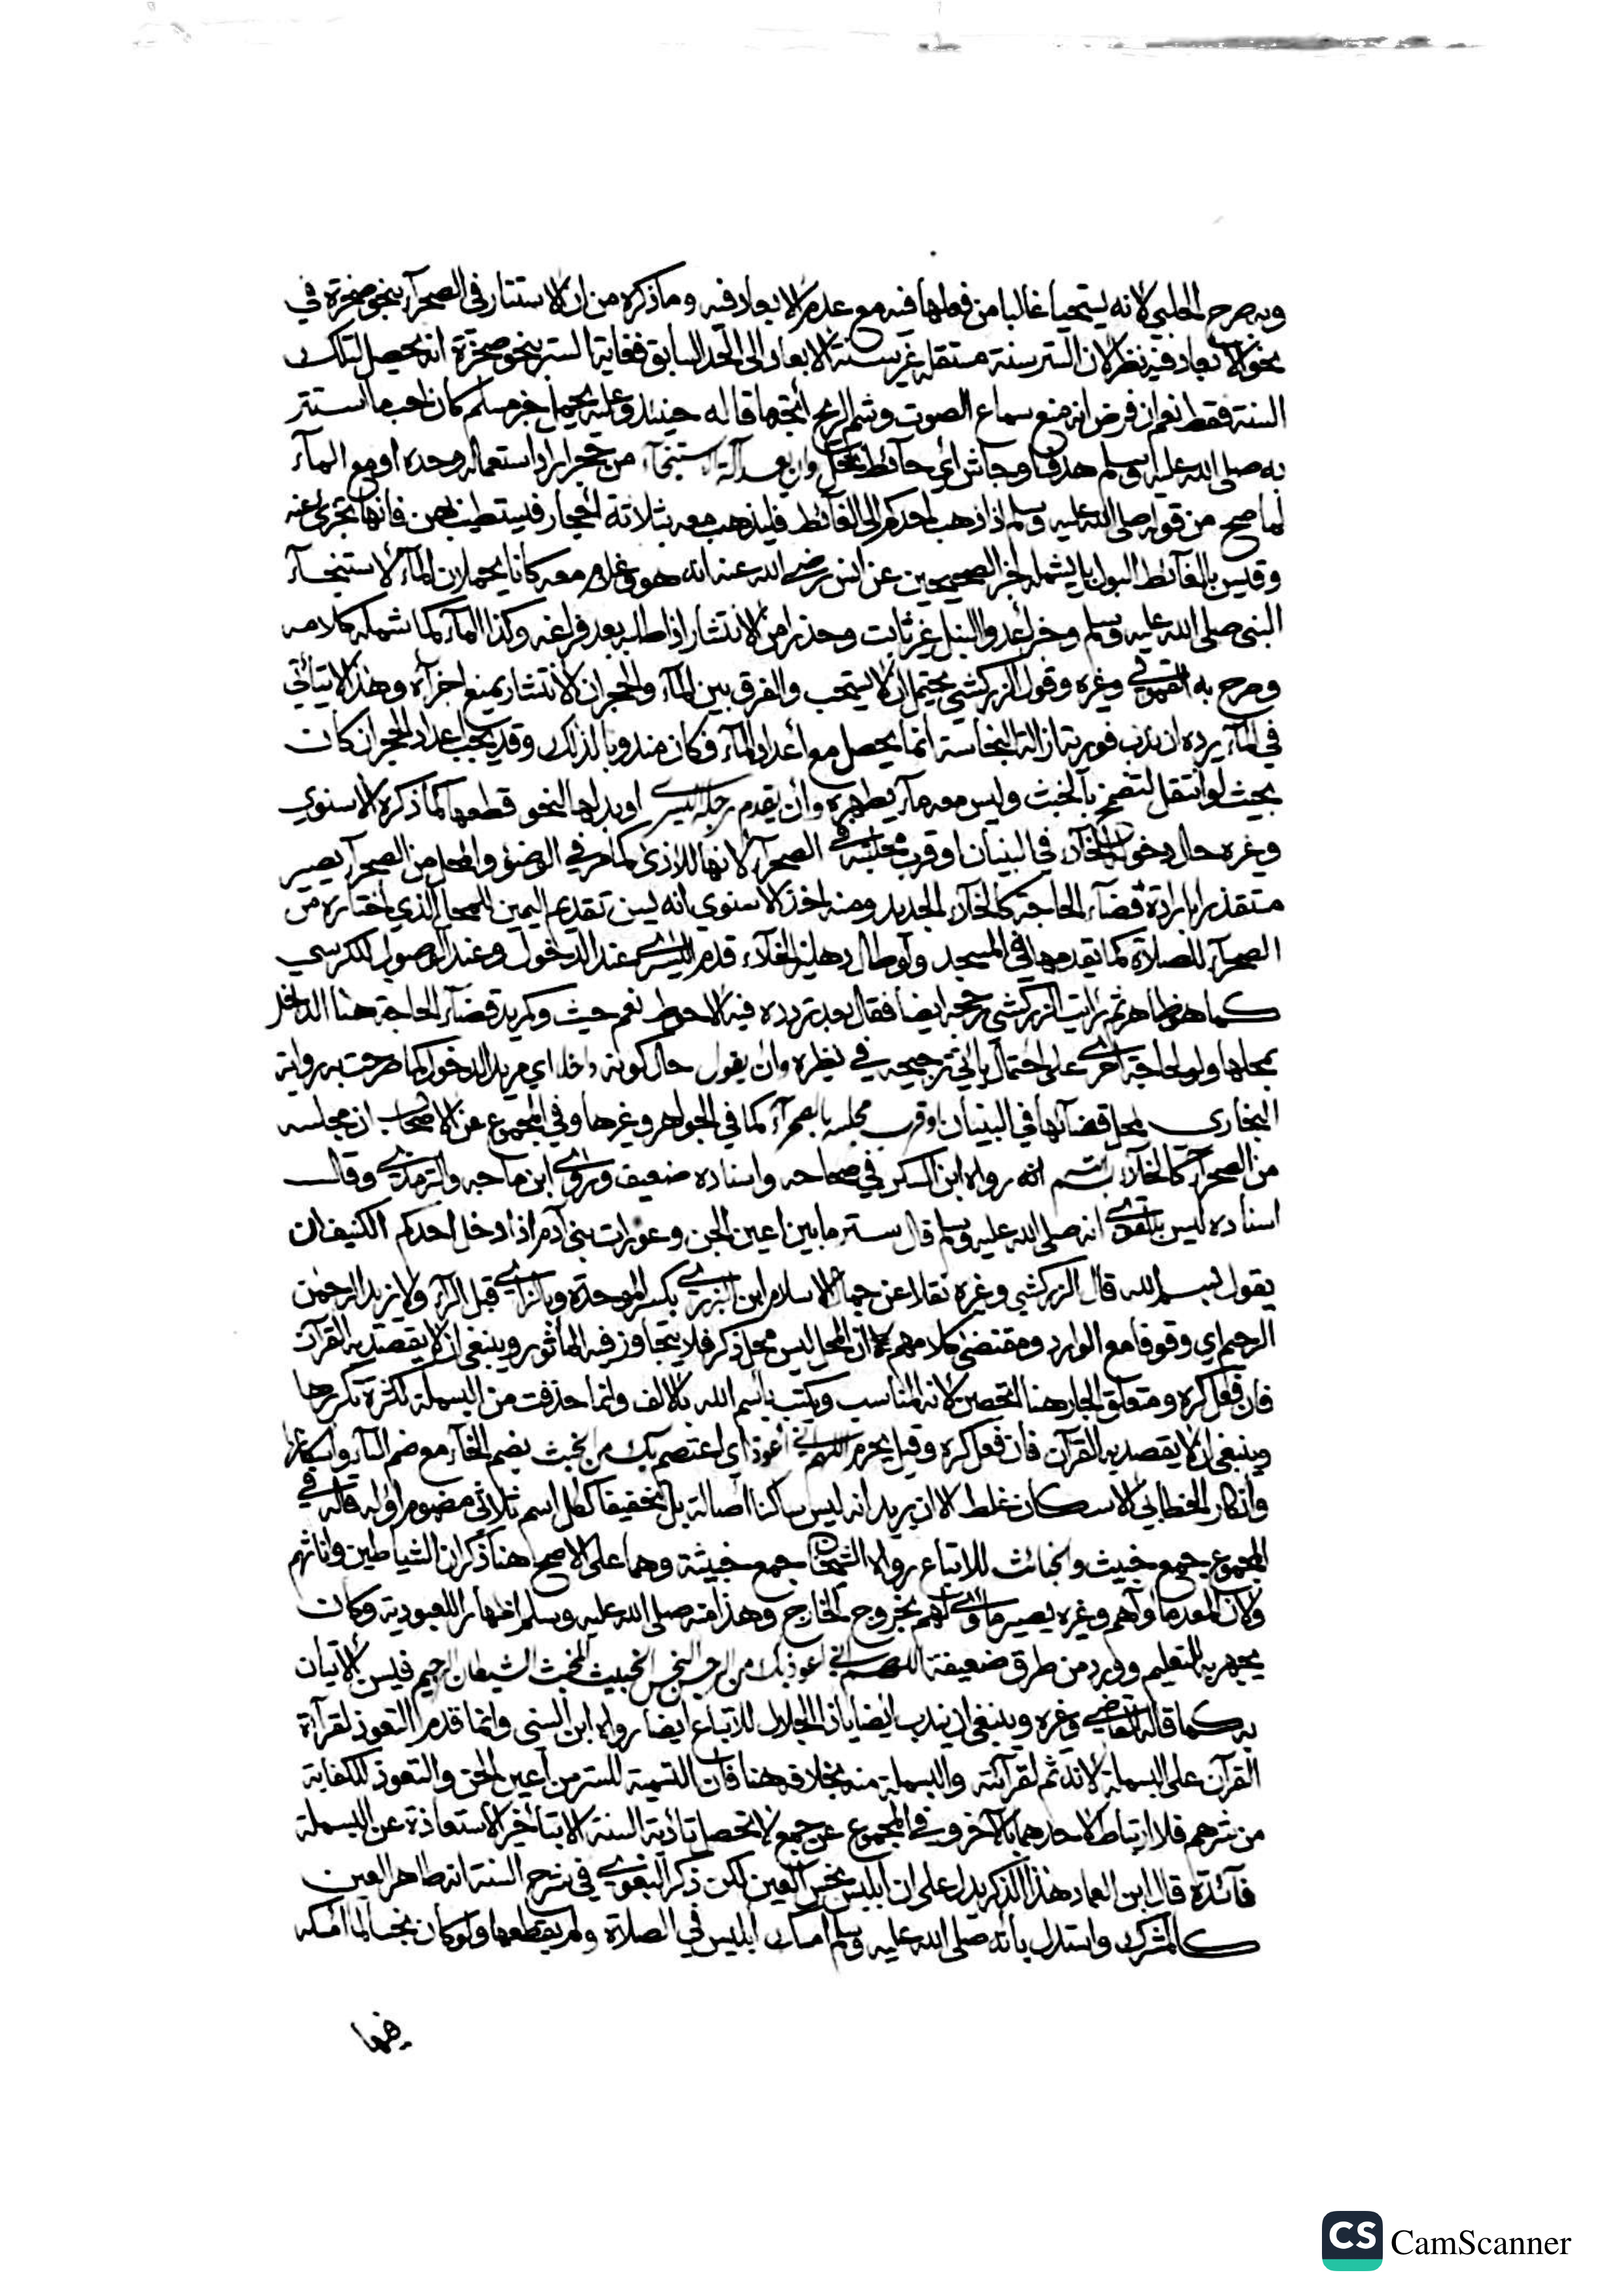 وبه صرح الحليمي لانه يستحيا غالبا من فعلها فيه مع عدم الابعاد فيه وما ذكره من ان الاستتار في الصحرآء بنحو صخرة في
نحو الابعاد فيه نظر لان الستر سنة مستقلة غير سنة الابعاد الى الحد السابق فغاية الستر بنحو صخرة انه يحصل لتلك
السنة فقط نعم ان فرض انه منع سماع الصوت وشم الريح اتجه ما قاله حينئذ وعليه يحمل خبر مسلم كان احب ما استتر
به صلى الله عليه وسلم هدف او حائش اي حائط نخل وان يعد آلة الاستنجآء من حجر اراد استعماله وحده او مع المآء
لما صح من قوله صلى الله عليه وسلم اذا ذهب احدكم الى الغائط فليذهب معه بثلاثة احجار فيستطيب بهن فانها تجزئ عنه
وقيس بالغائط البول بل يشمله خبر الصحيحين عن انس رضي الله عنه انه هو وغلام معه كانا يحملان المآء لاستنجآء
النبي صلى الله عليه وسلم وخبر اعدوا النبل غير ثابت وحذرا من الانتشار اذا طلبه بعد فراغه وكذا المآء كما شمله كلامه
وصرح به القمولي وغيره وقول الزركشي يحتمل ان لا يستحب والفرق بين المآء والحجر ان الانتشار يمنع اجزآه وهذا لا يتأتى
في المآء يرده ان ندب فورية ازالة النجاسة انما يحصل مع اعداد المآء فكان مندوبا لذلك وقد يجب اعداد الحجر ان كان
بحيث لو انتقل لتضمخ بالخبث وليس معه مآء يطهره وان يقدم رجله اليسرى او بدلها لنحو قطعها كما ذكره الاسنوي
وغيره حال دخوله الخلآء في البنيان او قرب مجلسه في الصحرآء لانها للاذى كما مر في الوضوء والمحل من الصحرآء يصير
مستقذرا بارادة قضآء الحاجة كالخلآء الجديد ومنه اخذ الاسنوي انه يسن تقديم اليمين للمحل الذي اختاره من
الصحرآء للصلاة كما يقدمها في المسجد ولو طال دهليز الخلآء قدم اليسرى عند الدخول وعند الوصول للكرسي
كما هو ظاهر ثم رايت الزركشي رجحه ايضا فقال بعد تردده فيه الاحوط نعم حيث ولم يرد قضآء الحاجة هنا الداخل
بمحلها ولو لحاجة اخرى على احتمال ياتي ترجيحه في نظيره وان يقول حال كونه داخلا اي مريد الدخول كما صرحت به رواية
البخاري لمحل قضآئها في البنيان او قرب مجلسه بالصحرآء كما في الجواهر وغيرها وفي المجموع عن الاصحاب ان مجلسه
من الصحرآء كالخلآء بسم الله رواه ابن السكن في صحاحه واسناده ضعيف وروى ابن ماجه والترمذي وقال
اسناده ليس بالقوى انه صلى الله عليه وسلم قال ستر ما بين اعين الجن وعورات بني آدم اذا دخل احدكم الكنيف ان
يقول بسم الله قال الزركشي وغيره نقلا عن جمال الاسلام ابن البزري بكسر الموحدة وبالزاي قبل الرآء ولا يزيد الرحمن
الرحيم اي وقوفا مع الوارد ومقتضى كلامهم ان المحل ليس محل ذكر فلا يتجاوز فيه الماثور وينبغي ان لا يقصد به القرآن
فان فعل كره ومتعلق الجار هنا اتحصن لانه المناسب ويكتب باسم الله بالالف وانما حذفت من البسملة لكثرة تكررها
وينبغي ان لا يقصد به القرآن فان فعل كره وقيل يحرم اللهم اني اعوذ اي اعتصم بك من الخبث بضم الخآء مع ضم البآء واسكانها
وانكار الخطابي الاسكان غلط الا ان يريد انه ليس ساكنا اصالة بل تخفيفا ككل اسم ثلاثي مضموم اوله قاله في
المجموع جمع خبيث والخبائث للاتباع رواه الشيخان جمع خبيثة وهما على الاصح هنا ذكران الشياطين واناثهم
ولان المعد ماواهم وغيره يصير ماوى لهم بخروج الخارج وهذا منه صلى الله عليه وسلم اظهار للعبودية وكان
يجهر به للتعليم وورد من طرق ضعيفة اللهم اني اعوذ بك من الرجس النجس الخبيث المخبث الشيطان الرجيم فيسن الاتيان
به كما قاله القاضي وغيره وينبغي ان يندب ايضا يا ذا الجلال للاتباع ايضا رواه ابن السني وانما قدم التعوذ لقرآءة
القرآن على البسملة لانه ثم لقرآئته والبسملة منه بخلافه هنا فان التسمية للستر من اعين الجن والتعوذ للكفاية
من شرهم فلا ارتباط لاحدهما بالآخر وفي المجموع عن جمع لا تحصل تأدية السنة الا بتأخير الاستعاذة عن البسملة
فائدة قال ابن العماد هذا الذكر يدل على ان ابليس نجس العين لكن ذكر البغوي في شرح السنة انه طاهر العين
كالمشرك واستدل بانه صلى الله عليه وسلم امسك ابليس في الصلاة ولم يقطعها ولو كان نجسا لما امسكه
فيها
CS CamScanner